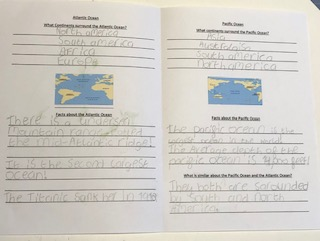 Atlantic Ocean
What Continents surround the Atlantic Ocean?
North america
South america
Africa
Europe
Facts about the Atlantic Ocean
There is a
Mountain range
the mid-Atlantic ridge!
It is the second largest
ocean!
The Titanic Sank her in
Pacific Ocean
What continents surround the Pacific Ocean?
Asia
South america
North america
Facts about the Pacific Ocean
The pacific ocean is the
ocean in the world.
The Average depth of the
pacific ocean is
What is similar about the Pacific Ocean and the Atlantic Ocean?
They both are
by South and North